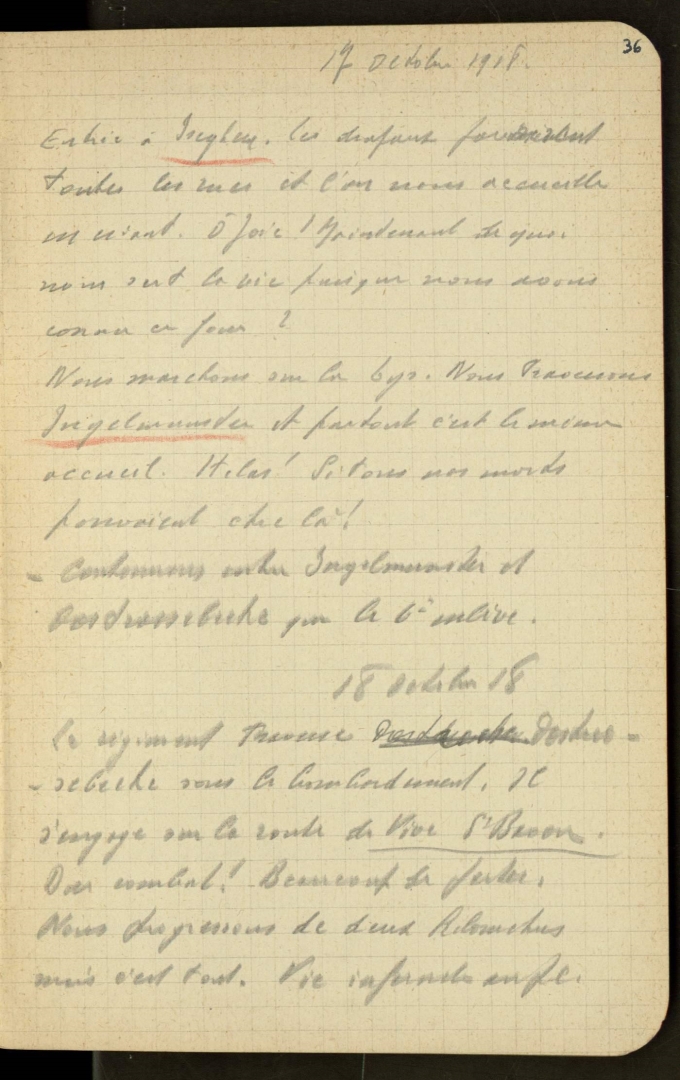 36
17 Octobre 1918.
Entrée à Iseghem. Les drapeaux
toutes les rues et l'on nous accueille
en criant. Ô joie ! Maintenant de quoi
nous sert la vie puisque nous avons
connu ce jour ?
Nous marchons sur la Lys. Nous traversons
Ingelmunster et partout c'est le même
accueil. Hélas ! Si tous nos morts
pouvaient être là !
- entre Ingelmunster et
Oostroosebecke que le 6e enlève.
18 Octobre 18
Le régiment traverse Oostroo-
-sebecke sous le bombardement, et
s'engage sur la route de Vive St Bavon.
Dur combat ! Beaucoup de pertes.
Nous progressons de deux kilomètres
mais c'est tout. Vie infernale au P.C.